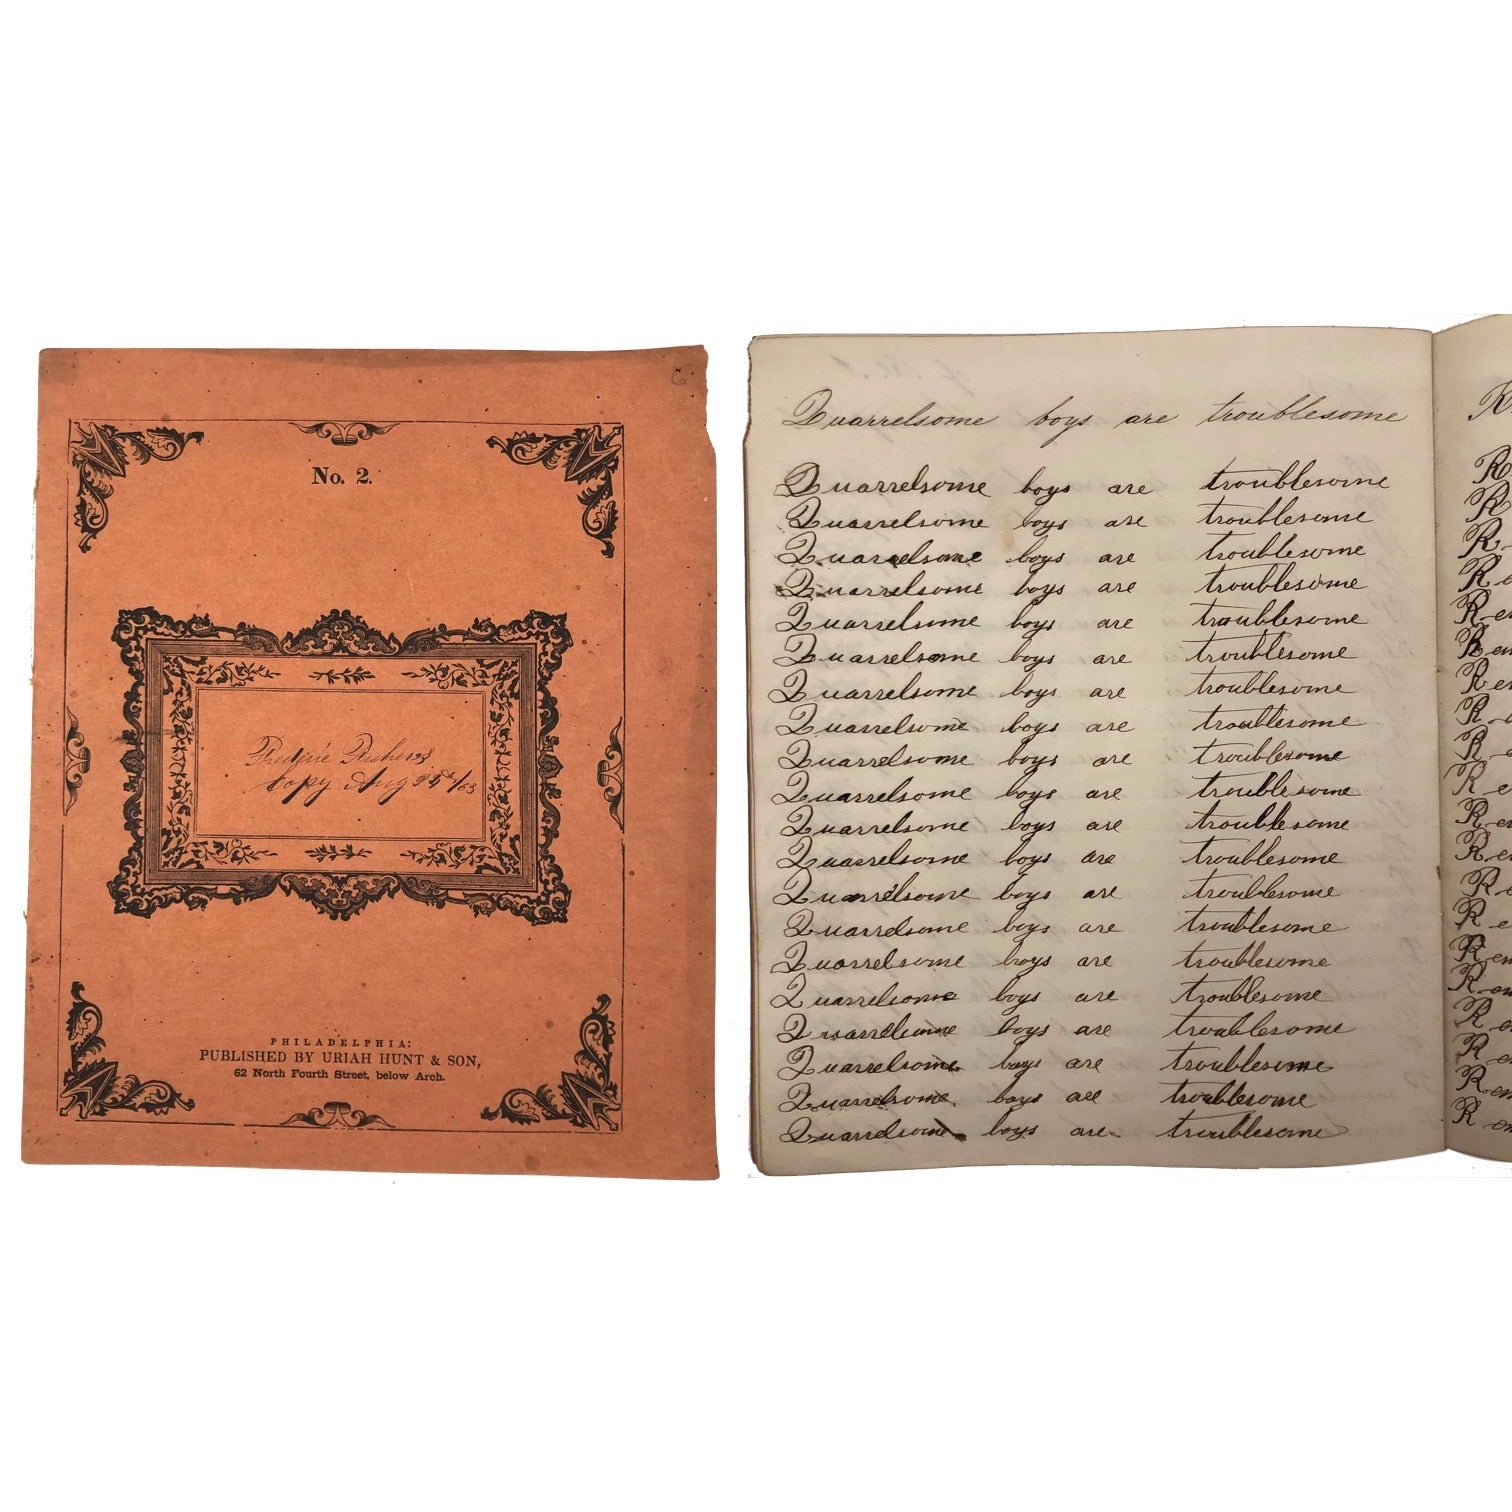 No. 2.
Copy Aug
PHILADELPHIA:
PUBLISHED BY URIAH HUNT & SON,
62 North Fourth Street, below Arch.
Quarrelsome boys are troublesome
Quarrelsome boys are troublesome
Quarrelsome boys are troublesome
Quarrelsome boys are troublesome
Quarrelsome boys are troublesome
Quarrelsome boys are troublesome
Quarrelsome boys are troublesome
Quarrelsome boys are troublesome
Quarrelsome boys are troublesome
Quarrelsome boys are troublesome
Quarrelsome boys are troublesome
Quarrelsome boys are troublesome
Quarrelsome boys are troublesome
Quarrelsome boys are troublesome
Quarrelsome boys are troublesome
Quarrelsome boys are troublesome
Quarrelsome boys are troublesome
Quarrelsome boys are troublesome
Quarrelsome boys are troublesome
Quarrelsome boys are troublesome
Quarrelsome boys are troublesome